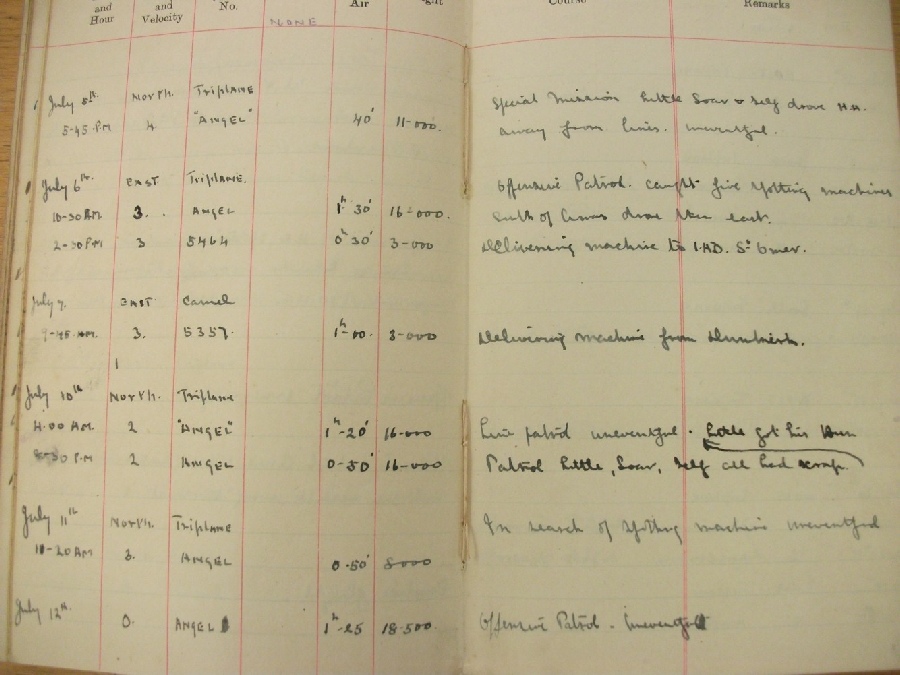 and Hour and Velocity No. Air Course Remarks
NONE
July 5th North. Triplane
5-45 P.M 4 "ANGEL" 40' 11-000. Special Mission Little Soar & self drove H.A.
away from lines. uneventful.
July 6th EAST Triplane. Offensive Patrol. caught five spotting machines
10-30 AM 3. ANGEL 1h 30' 16-000. South of drove them east.
2-30 PM 3 5464 0h 30' 3-000 Delivering machine to 1.A.D. St Omer.
July 7. EAST Camel
9-45 AM. 3. 5357 1h-00. 3-000 Delivering machine from Dunkirk.
July 10th North. Triplane
4.00 AM. 2 "ANGEL" 1h-20' 16-000 Line patrol uneventful. Little got his Hun
8-30 P.M 2 ANGEL 0-50' 16-000 Patrol Little, Soar, self all had scrap.
July 11th North. Triplane In search of spotting machine uneventful
10-20 AM 3. ANGEL 0-50' 8000
July 12th. 0. ANGEL 1h-25 18-500 Offensive Patrol. Uneventful